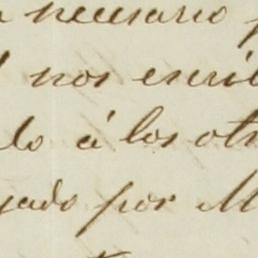 necesario
nos escrib
á los otr
por M